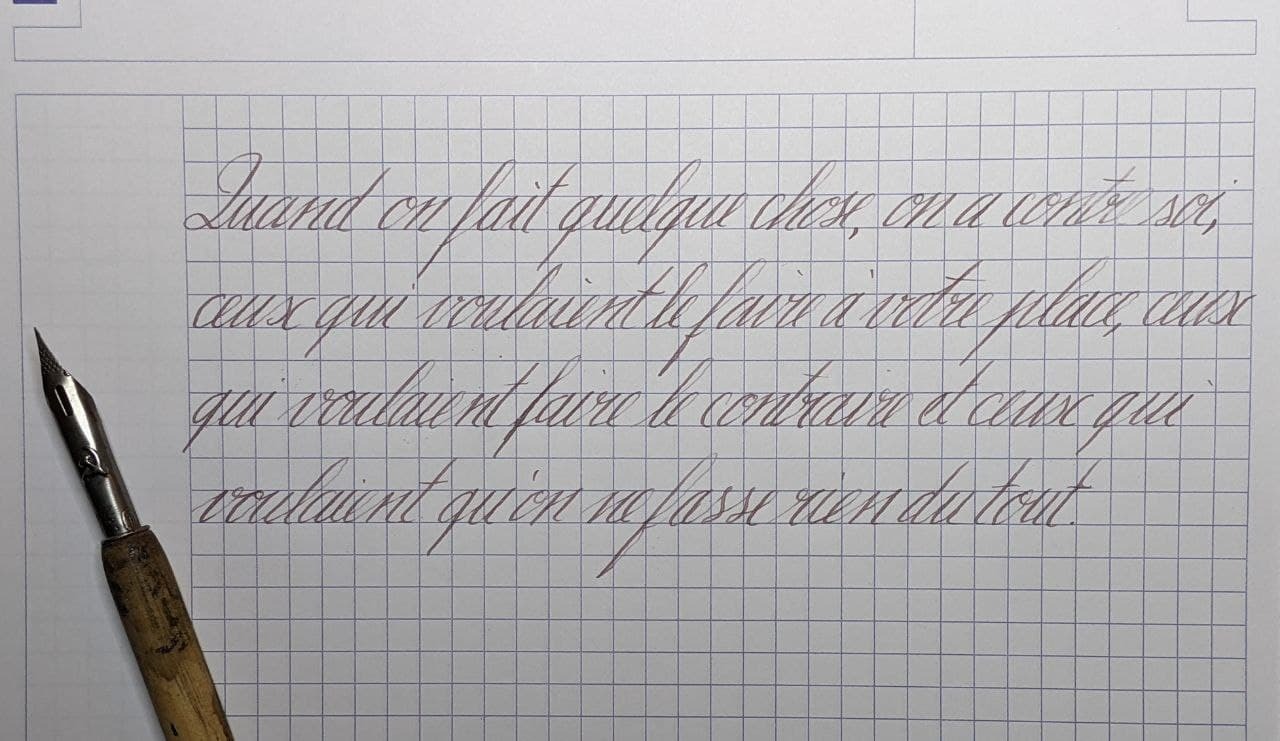 Quand on fait quelque chose, on a contre soi,
ceux qui voulaient le faire à votre place, ceux
qui voulaient faire le contraire et ceux qui
voulaient qu'on ne fasse rien du tout.